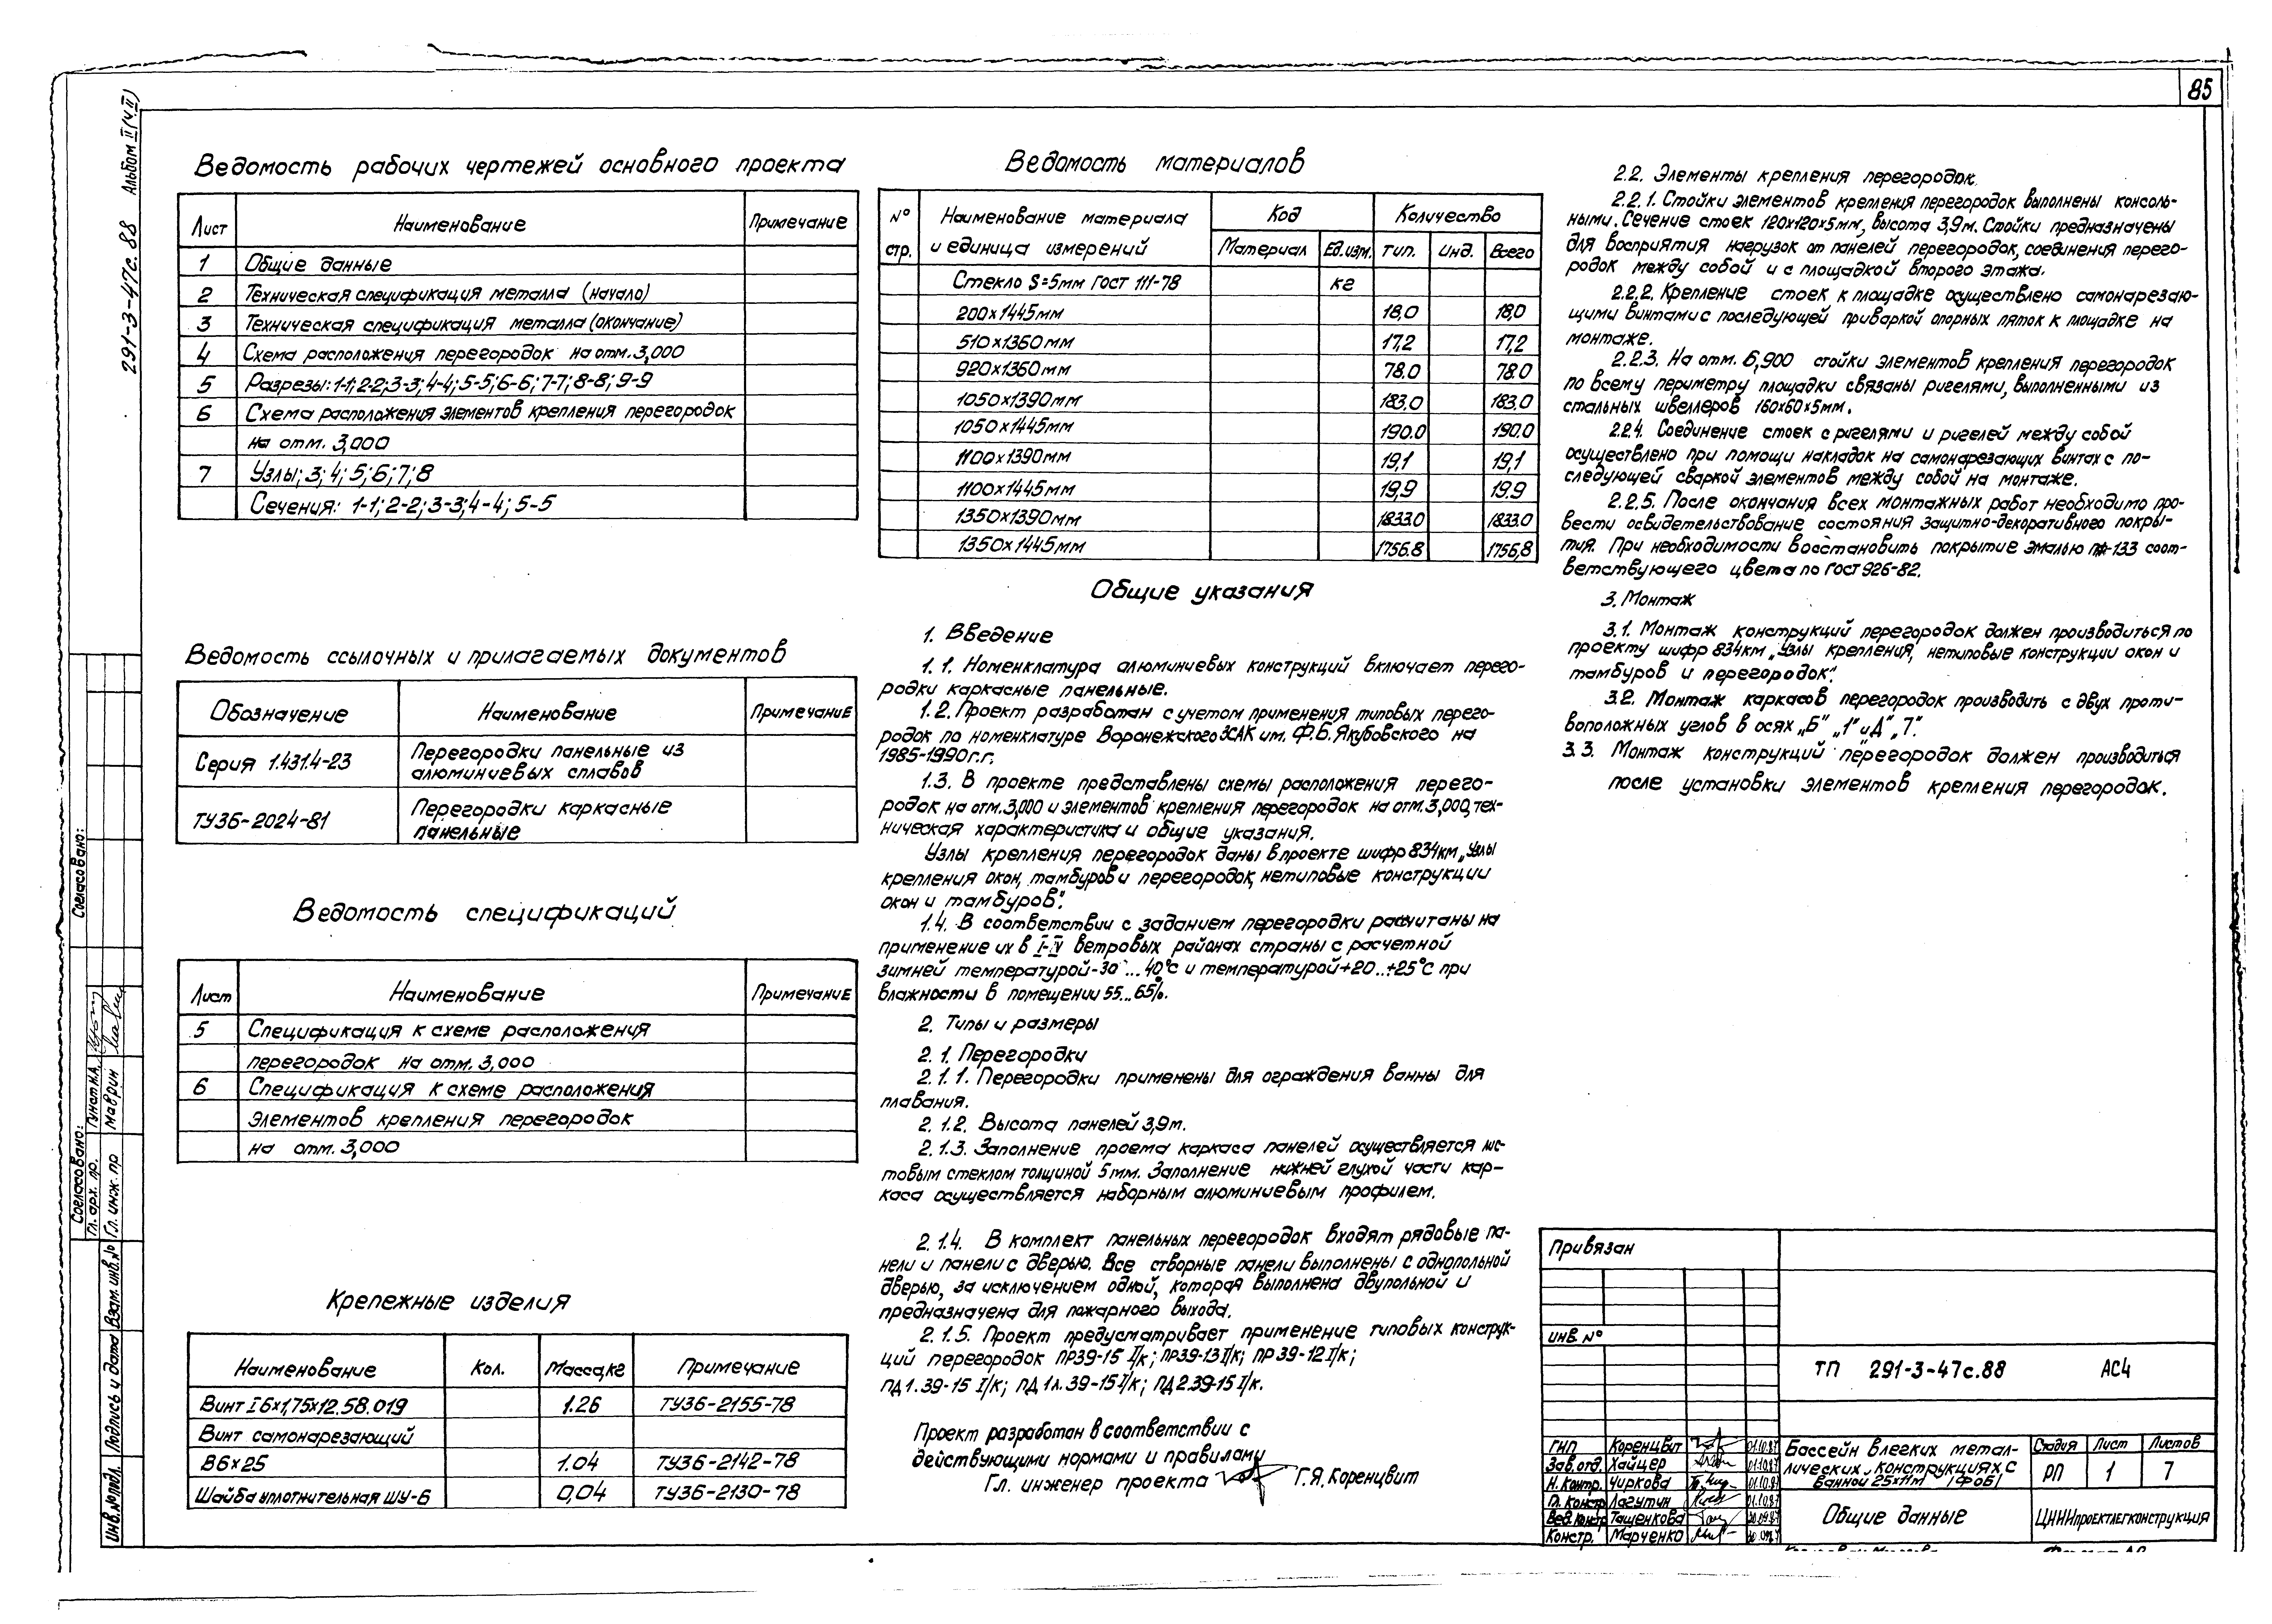 85
Альбом II (ч.II)
291-3-47с.88
Ведомость рабочих чертежей основного проекта
Лист Наименование Примечание
1 Общие данные
2 Техническая спецификация металла (начало)
3 Техническая спецификация металла (окончание)
4 Схема расположения перегородок на отм. 3,000
5 Разрезы: 1-1; 2-2; 3-3; 4-4; 5-5; 6-6; 7-7; 8-8; 9-9
6 Схема расположения элементов крепления перегородок
на отм. 3,000
7 Узлы; 3; 4; 5; 6; 7; 8
Сечения: 1-1; 2-2; 3-3; 4-4; 5-5
Ведомость ссылочных и прилагаемых документов
Обозначение Наименование Примечание
Серия 1.431.4-23 Перегородки панельные из
алюминиевых сплавов
ТУ36-2024-81 Перегородки каркасные
панельные
Ведомость спецификаций
Лист Наименование Примечание
5 Спецификация к схеме расположения
перегородок на отм. 3,000
6 Спецификация к схеме расположения
элементов крепления перегородок
на отм. 3,000
Крепежные изделия
Наименование Кол. Масса,кг Примечание
Винт I 6х1,75х12.58.019 1.26 ТУ36-2155-78
Винт самонарезающий
В6х25 1.04 ТУ36-2142-78
Шайба уплотнительная ШУ-6 0,04 ТУ36-2130-78
Ведомость материалов
№ стр. Наименование материала и единица измерений Код Количество
Материал Ед.изм. тип. Инд. Всего
Стекло S=5мм ГОСТ 111-78 кг
200х1445мм 18,0 18,0
510х1360мм 17,2 17,2
920х1360мм 78.0 78.0
1050х1390мм 183,0 183,0
1050х1445мм 190.0 190.0
1100х1390мм 19,1 19,1
1100х1445мм 19,9 19.9
1350х1390мм 1833.0 1833.0
1350х1445мм 1756.8 1756,8
Общие указания
1. Введение
1.1. Номенклатура алюминиевых конструкций включает перего-
родки каркасные панельные.
1.2. Проект разработан с учетом применения типовых перего-
родок по номенклатуре Воронежского ЗСАК им. Ф.Б. Якубовского на
1985-1990г.г.
1.3. В проекте представлены схемы расположения перего-
родок на отм. 3,000 и элементов крепления перегородок на отм. 3,000, тех-
ническая характеристика и общие указания.
Узлы крепления перегородок даны в проекте шифр 834км „Узлы
крепления окон, тамбуров и перегородок, нетиповые конструкции
окон и тамбуров".
1.4. В соответствии с заданием перегородки рассчитаны на
применение их в I-IV ветровых районах страны с расчетной
зимней температурой -30°...40°с и температурой +20...+25°с при
влажности в помещении 55...65%.
2. Типы и размеры
2.1. Перегородки
2.1.1. Перегородки применены для ограждения ванны для
плавания.
2.1.2. Высота панелей 3,9м.
2.1.3. Заполнение проема каркаса панелей осуществляется лис-
товым стеклом толщиной 5мм. Заполнение нижней глухой части кар-
каса осуществляется наборным алюминиевым профилем.
2.1.4. В комплект панельных перегородок входят рядовые па-
нели и панели с дверью. Все створные панели выполнены с однопольной
дверью, за исключением одной, которая выполнена двупольной и
предназначена для пожарного выхода.
2.1.5. Проект предусматривает применение типовых конструк-
ций перегородок ПР39-15 I/к; ПР39-13 I/к; ПР39-12 I/к;
ПД1.39-15 I/к; ПД1л.39-15 I/к; ПД2.39-15 I/к.
Проект разработан в соответствии с
действующими нормами и правилами
Гл. инженер проекта Г.Я. Коренцвит
2.2. Элементы крепления перегородок.
2.2.1. Стойки элементов крепления перегородок выполнены консоль-
ными. Сечение стоек 120х120х5мм, высота 3,9м. Стойки предназначены
для восприятия нагрузок от панелей перегородок, соединения перего-
родок между собой и с площадкой второго этажа.
2.2.2. Крепление стоек к площадке осуществлено самонарезаю-
щими винтами с последующей приваркой опорных пяток к площадке на
монтаже.
2.2.3. На отм. 6,900 стойки элементов крепления перегородок
по всему периметру площадки связаны ригелями, выполненными из
стальных швеллеров 160х60х5мм.
2.2.4. Соединение стоек с ригелями и ригелей между собой
осуществлено при помощи накладок на самонарезающих винтах с по-
следующей сваркой элементов между собой на монтаже.
2.2.5. После окончания всех монтажных работ необходимо про-
вести освидетельствование состояния защитно-декоративного покры-
тия. При необходимости восстановить покрытие эмалью ПФ-133 соот-
ветствующего цвета по ГОСТ 926-82.
3. Монтаж
3.1. Монтаж конструкций перегородок должен производиться по
проекту шифр 834км „Узлы крепления, нетиповые конструкции окон и
тамбуров и перегородок".
3.2. Монтаж каркасов перегородок производить с двух проти-
воположных углов в осях „Б" „1" и „А" „7".
3.3. Монтаж конструкций перегородок должен производиться
после установки элементов крепления перегородок.
Привязан
ИНВ. №
ТП 291-3-47с.88 АС4
ГИП Коренцвит 01.10.87
Зав.отд. Хайцер 01.10.87
Н.контр. Чиркова 01.10.87
Гл. констр. Лагутин 01.10.87
Вед.констр. Ташенкова 30.09.87
Констр. Марченко
Бассейн в легких метал-
лических конструкциях с
ванной 25х11м /ФОБ/
Стадия Лист Листов
РП 1 7
Общие данные
ЦНИИпроектлегконструкция
Согласовано:
Согласовано:
Гл. арх. пр.
Гл. инж. пр Маврин
Инв.№подл. Подпись и дата Взам. инв.№